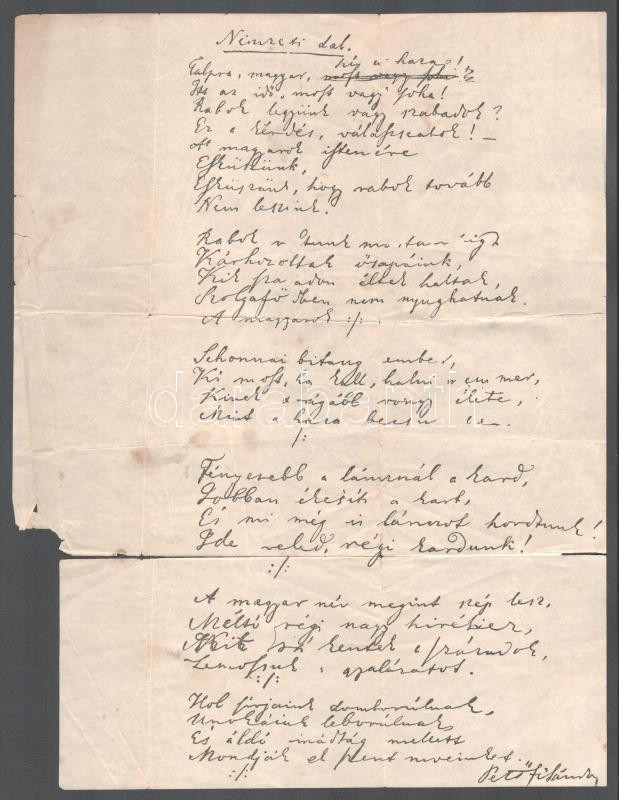 Nemzeti dal.
hí a haza!
Talpra, magyar, most vagy soha!
Itt az idő, most vagy soha!
Rabok legyünk vagy szabadok?
Ez a kérdés, válasszatok! –
A magyarok istenére
Esküszünk,
Esküszünk, hogy rabok tovább
Nem leszünk.
Rabok v tunk mo.ta-'ig
Kárhozottak ősapáink,
Kik sza adon éltek haltak,
Szolgaföldben nem nyughatnak.
A magyarok :/:
Sehonnai bitang ember,
Ki most, ha kell, halni nem mer,
Kinek drágább rongy élete,
Mint a haza becsülete.
:/:
Fényesebb a láncznál a kard,
Jobban ékesíti a kart,
És mi még is lánczot hordtunk!
Ide veled, régi kardunk!
:/:
A magyar név megint szép lesz,
Méltó régi nagy hiréhez,
Mit rá kentek a századok,
Lemossuk a gyalázatot.
:/:
Hol sírjaink domborúlnak,
Unokáink leborúlnak,
És áldó imádság mellett
Mondják el szent neveinket.
:/:
Petőfi Sándor
darabanth